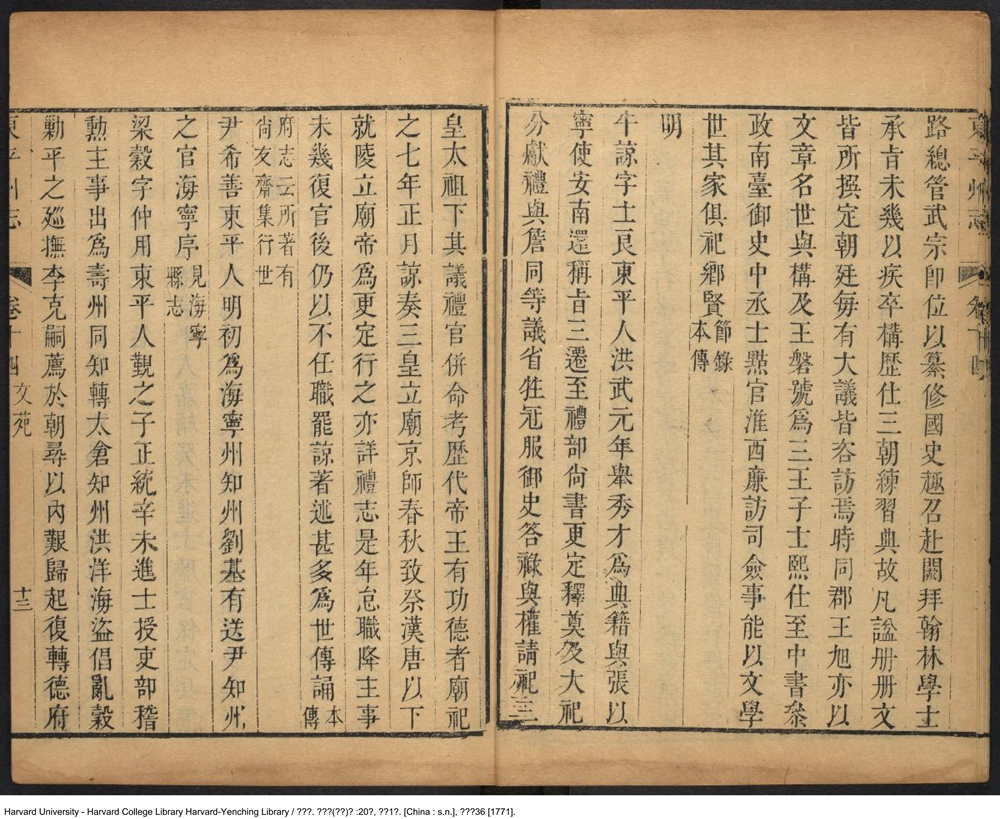 路總管武宗即位以纂修國史趣召赴闕拜翰林學士
承旨未幾以疾卒構歷仕三朝練習典故凡諡册册文
皆所撰定朝廷每有大議皆咨訪焉時同郡王旭亦以
文章名世與構及王磐號爲三王子士熙仕至中書叅
政南臺御史中丞士點官淮西廉訪司僉事能以文學
世其家俱祀鄉賢節錄本傳
明
牛諒字士良東平人洪武元年舉秀才爲典籍與張以
寧使安南還稱旨三遷至禮部尙書更定釋奠及大祀
分獻禮與詹同等議省牲冠服御史答祿與權請祀三
皇太祖下其議禮官併命考歷代帝王有功德者廟祀
之七年正月諒奏三皇立廟京師春秋致祭漢唐以下
就陵立廟帝爲更定行之亦詳禮志是年怠職降主事
未幾復官後仍以不任職罷諒著述甚多爲世傳誦本傳
府志云所著有尙友齋集行世
尹希善東平人明初爲海寧州知州劉基有送尹知州
之官海寧序見海寧縣志
梁穀字仲用東平人覲之子正統辛未進士授吏部稽
勲主事出爲壽州同知轉太倉知州洪洋海盜倡亂穀
勦平之廵撫李克嗣薦於朝尋以內艱歸起復轉德府
東平州志 卷十四 文苑 十三
Harvard University - Harvard College Library Harvard-Yenching Library / ???. ???(??)? :20?, ??1?. [China : s.n.], ???36 [1771].